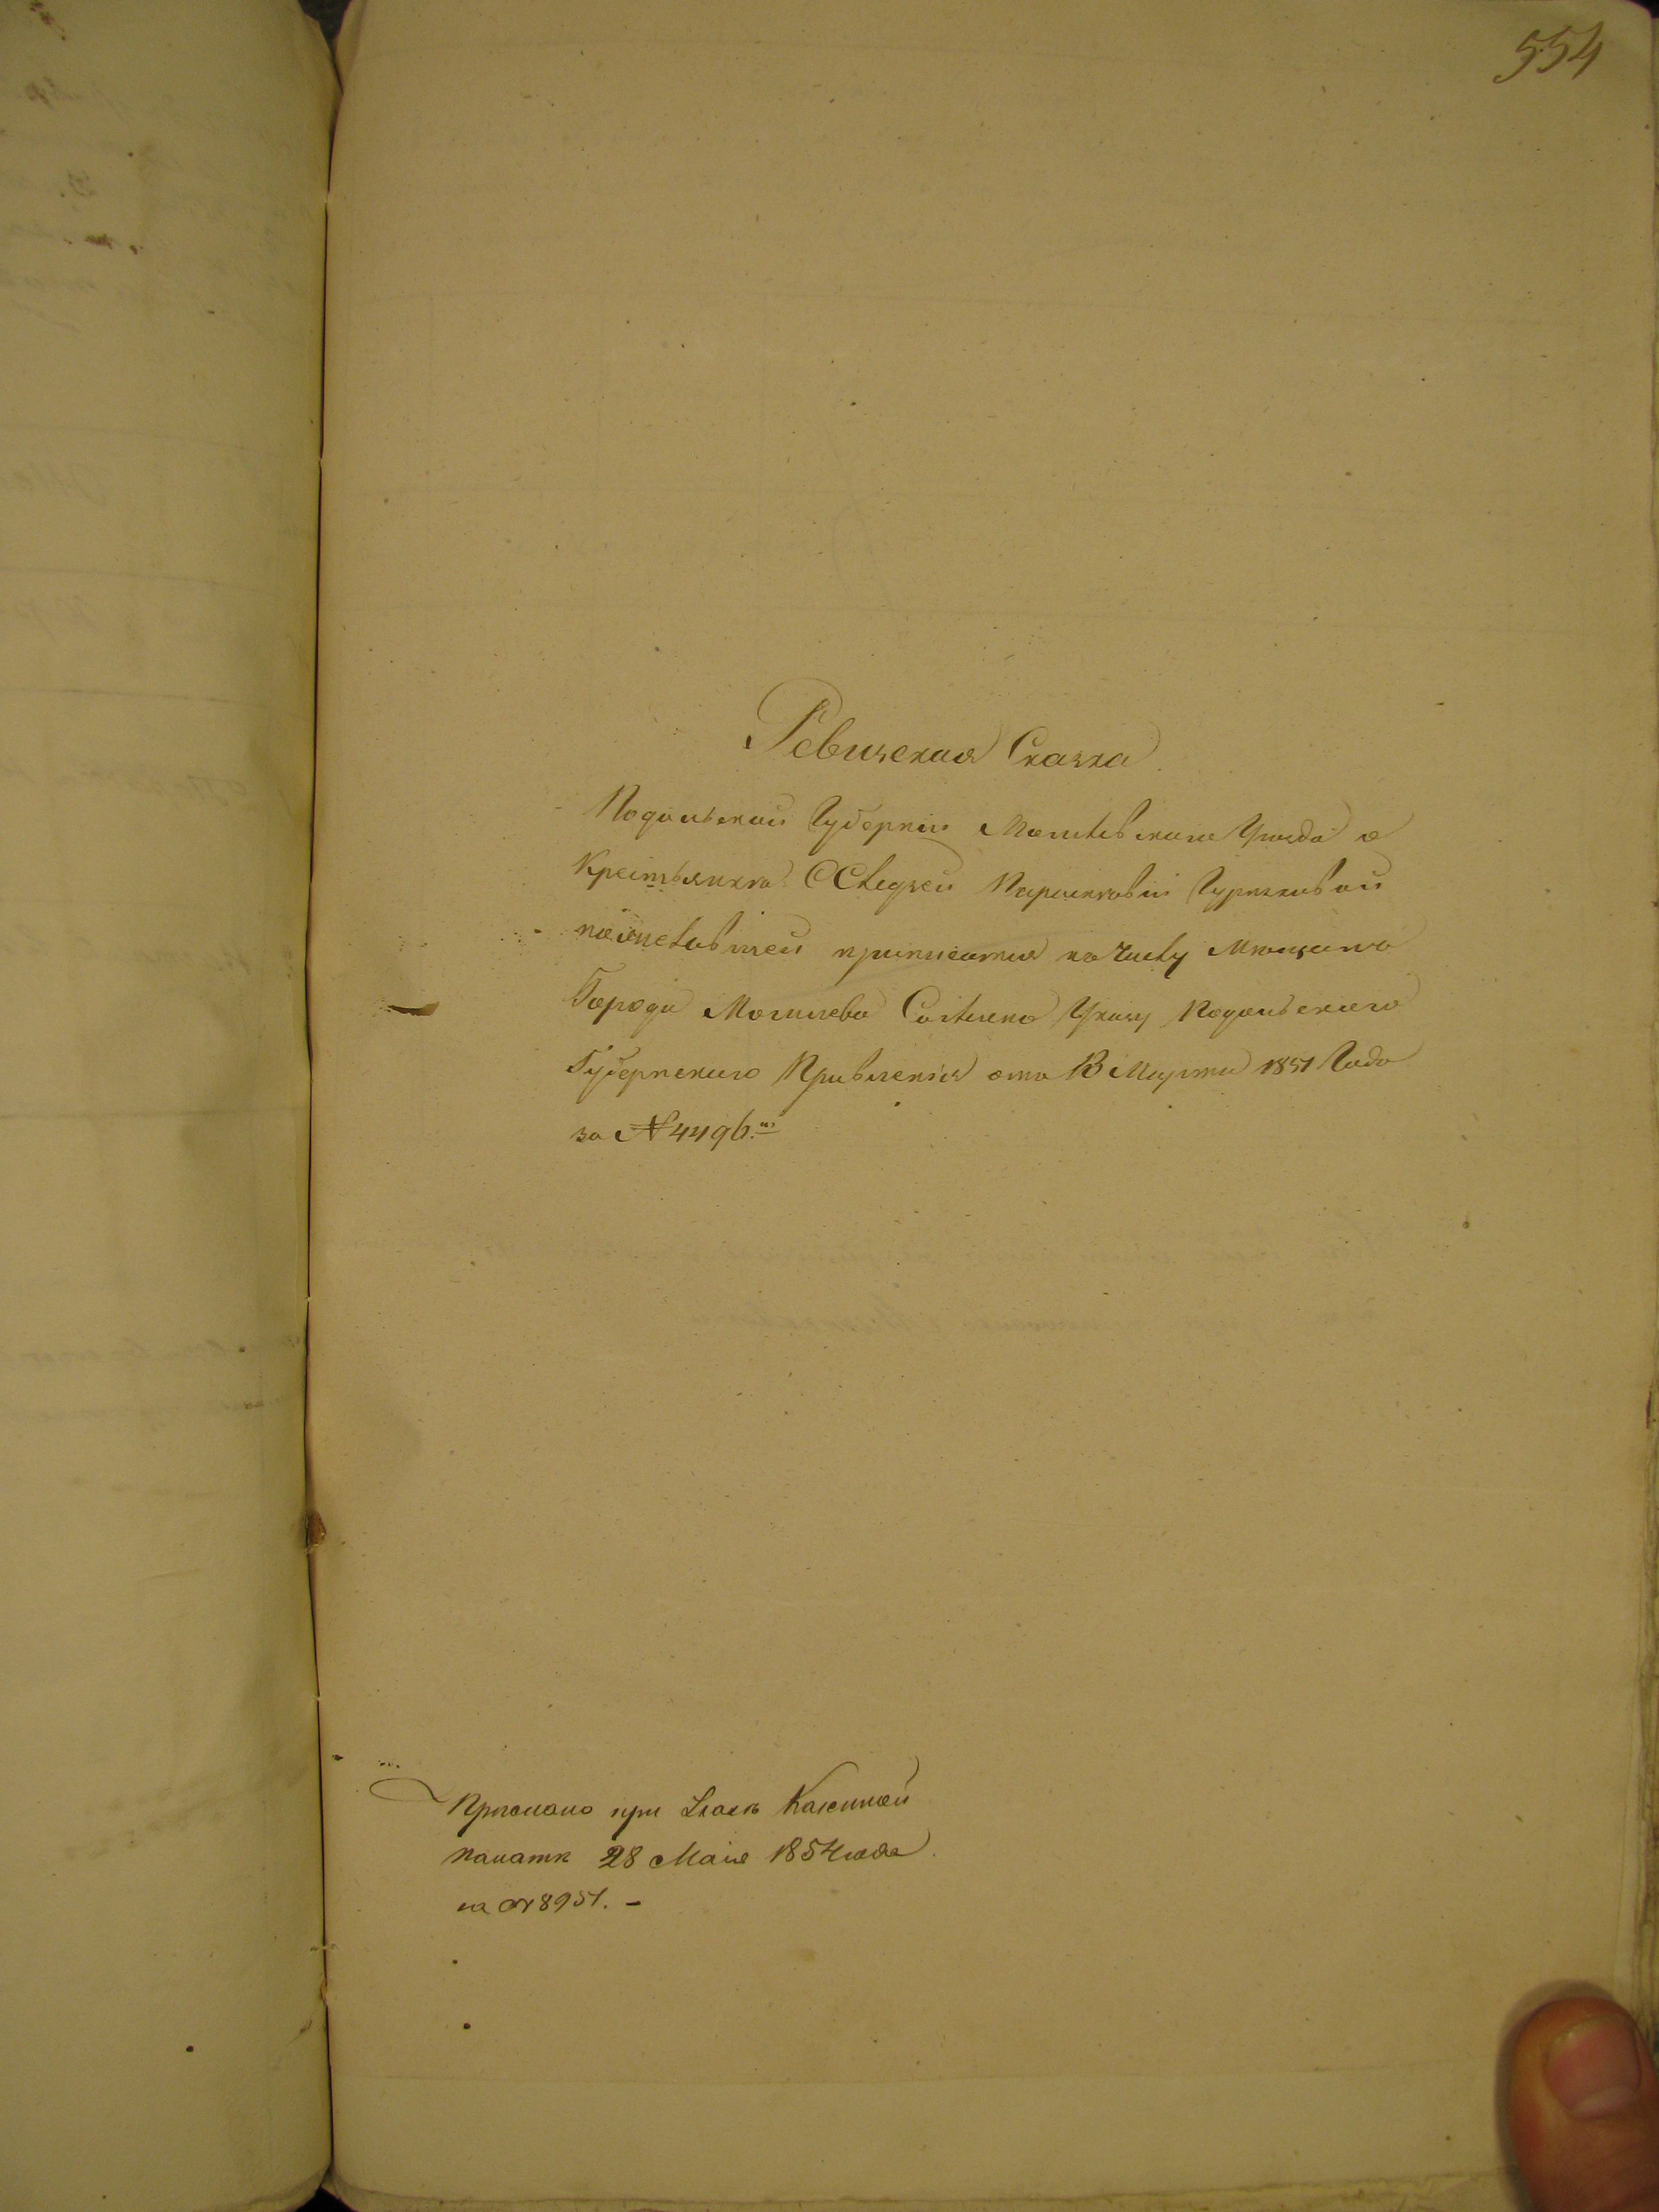 554
Ревизская Сказка
Подольской Губерніи Могилевскаго Уезда о
Крестьянке Параскевіи
приписатся къ числу Мещанъ
Города Могилева Согласно Указу Подольскаго
Губернскаго Правленія отъ 13 Марта 1851 Года
за № 4496.
Прислано при Указе Казенной
палаты 28 Маія 1854 года
за № 8951. –